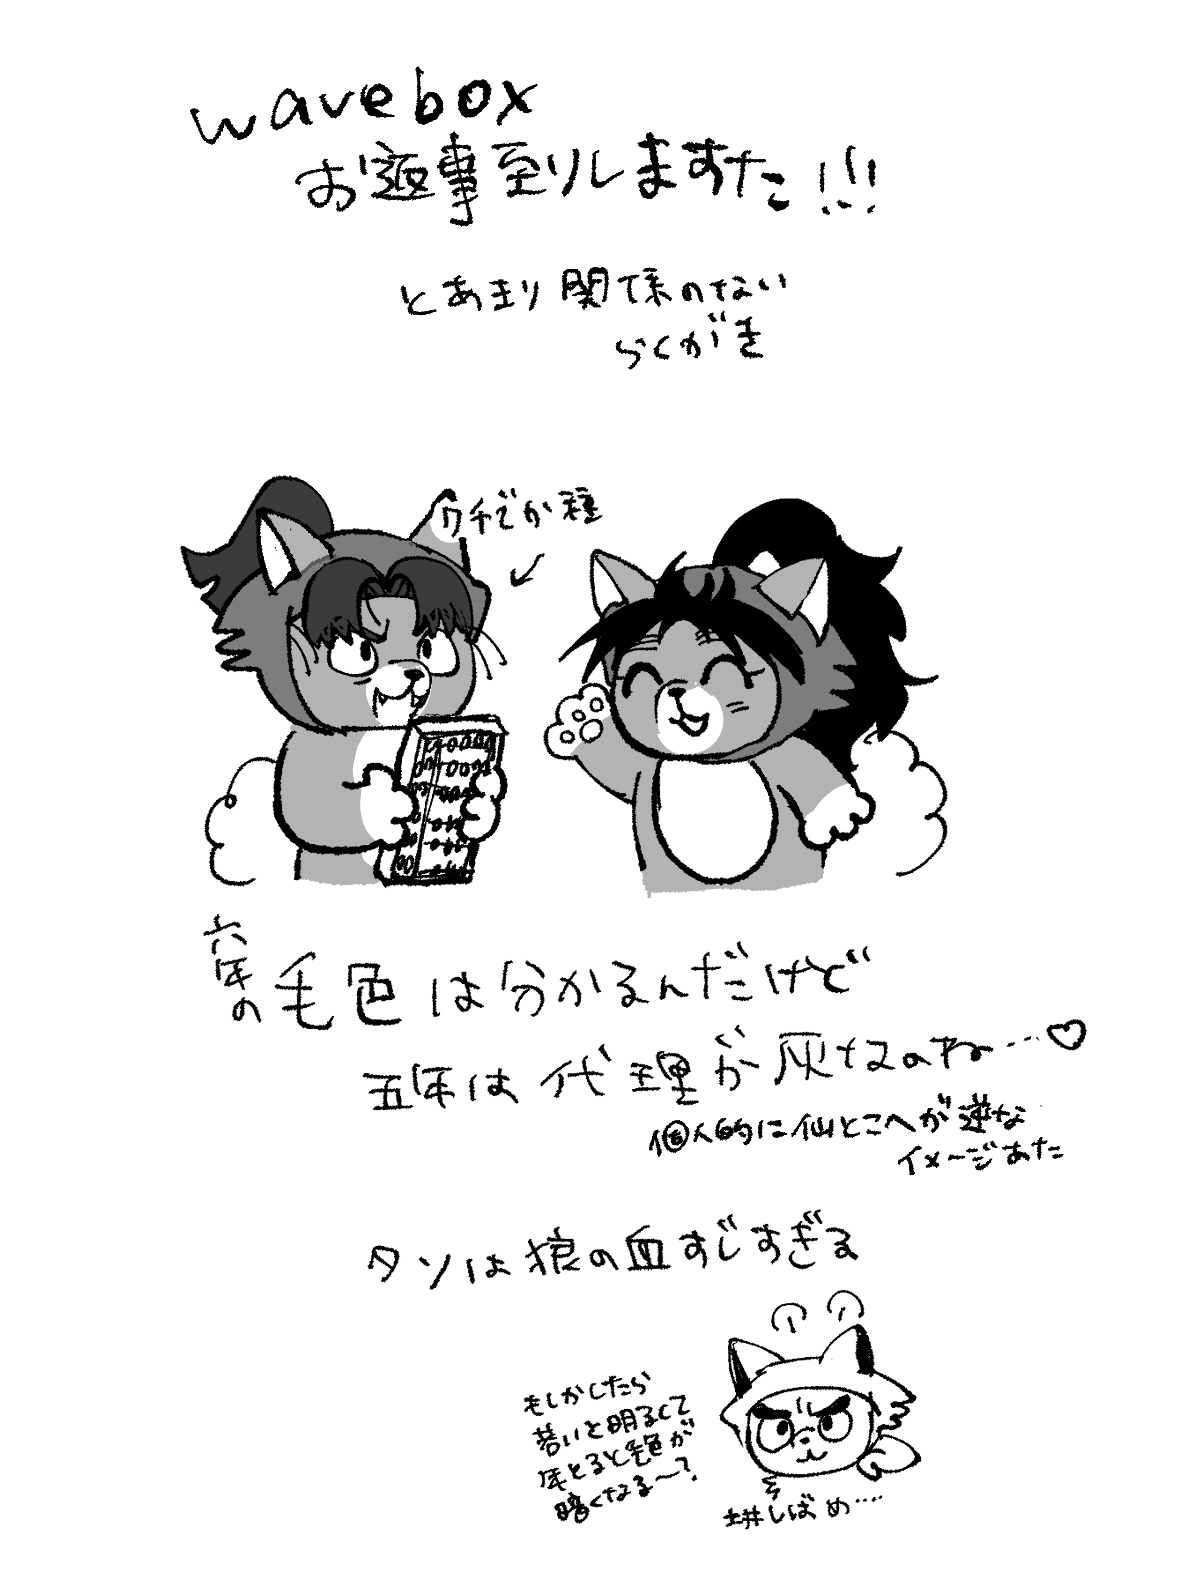 wavebox
お返事至りしますた!!!
とあまり関係のない
らくがき
ウチでか種
六年の毛色は分かるんだけど
五年は代理が灰なのね…♡
個人的に仙とこへが逆な
イメージあた
タソは狼の血すじすぎる
もしかしたら
若いと明るくて
年とると毛色が
暗くなる〜?
しばめ….